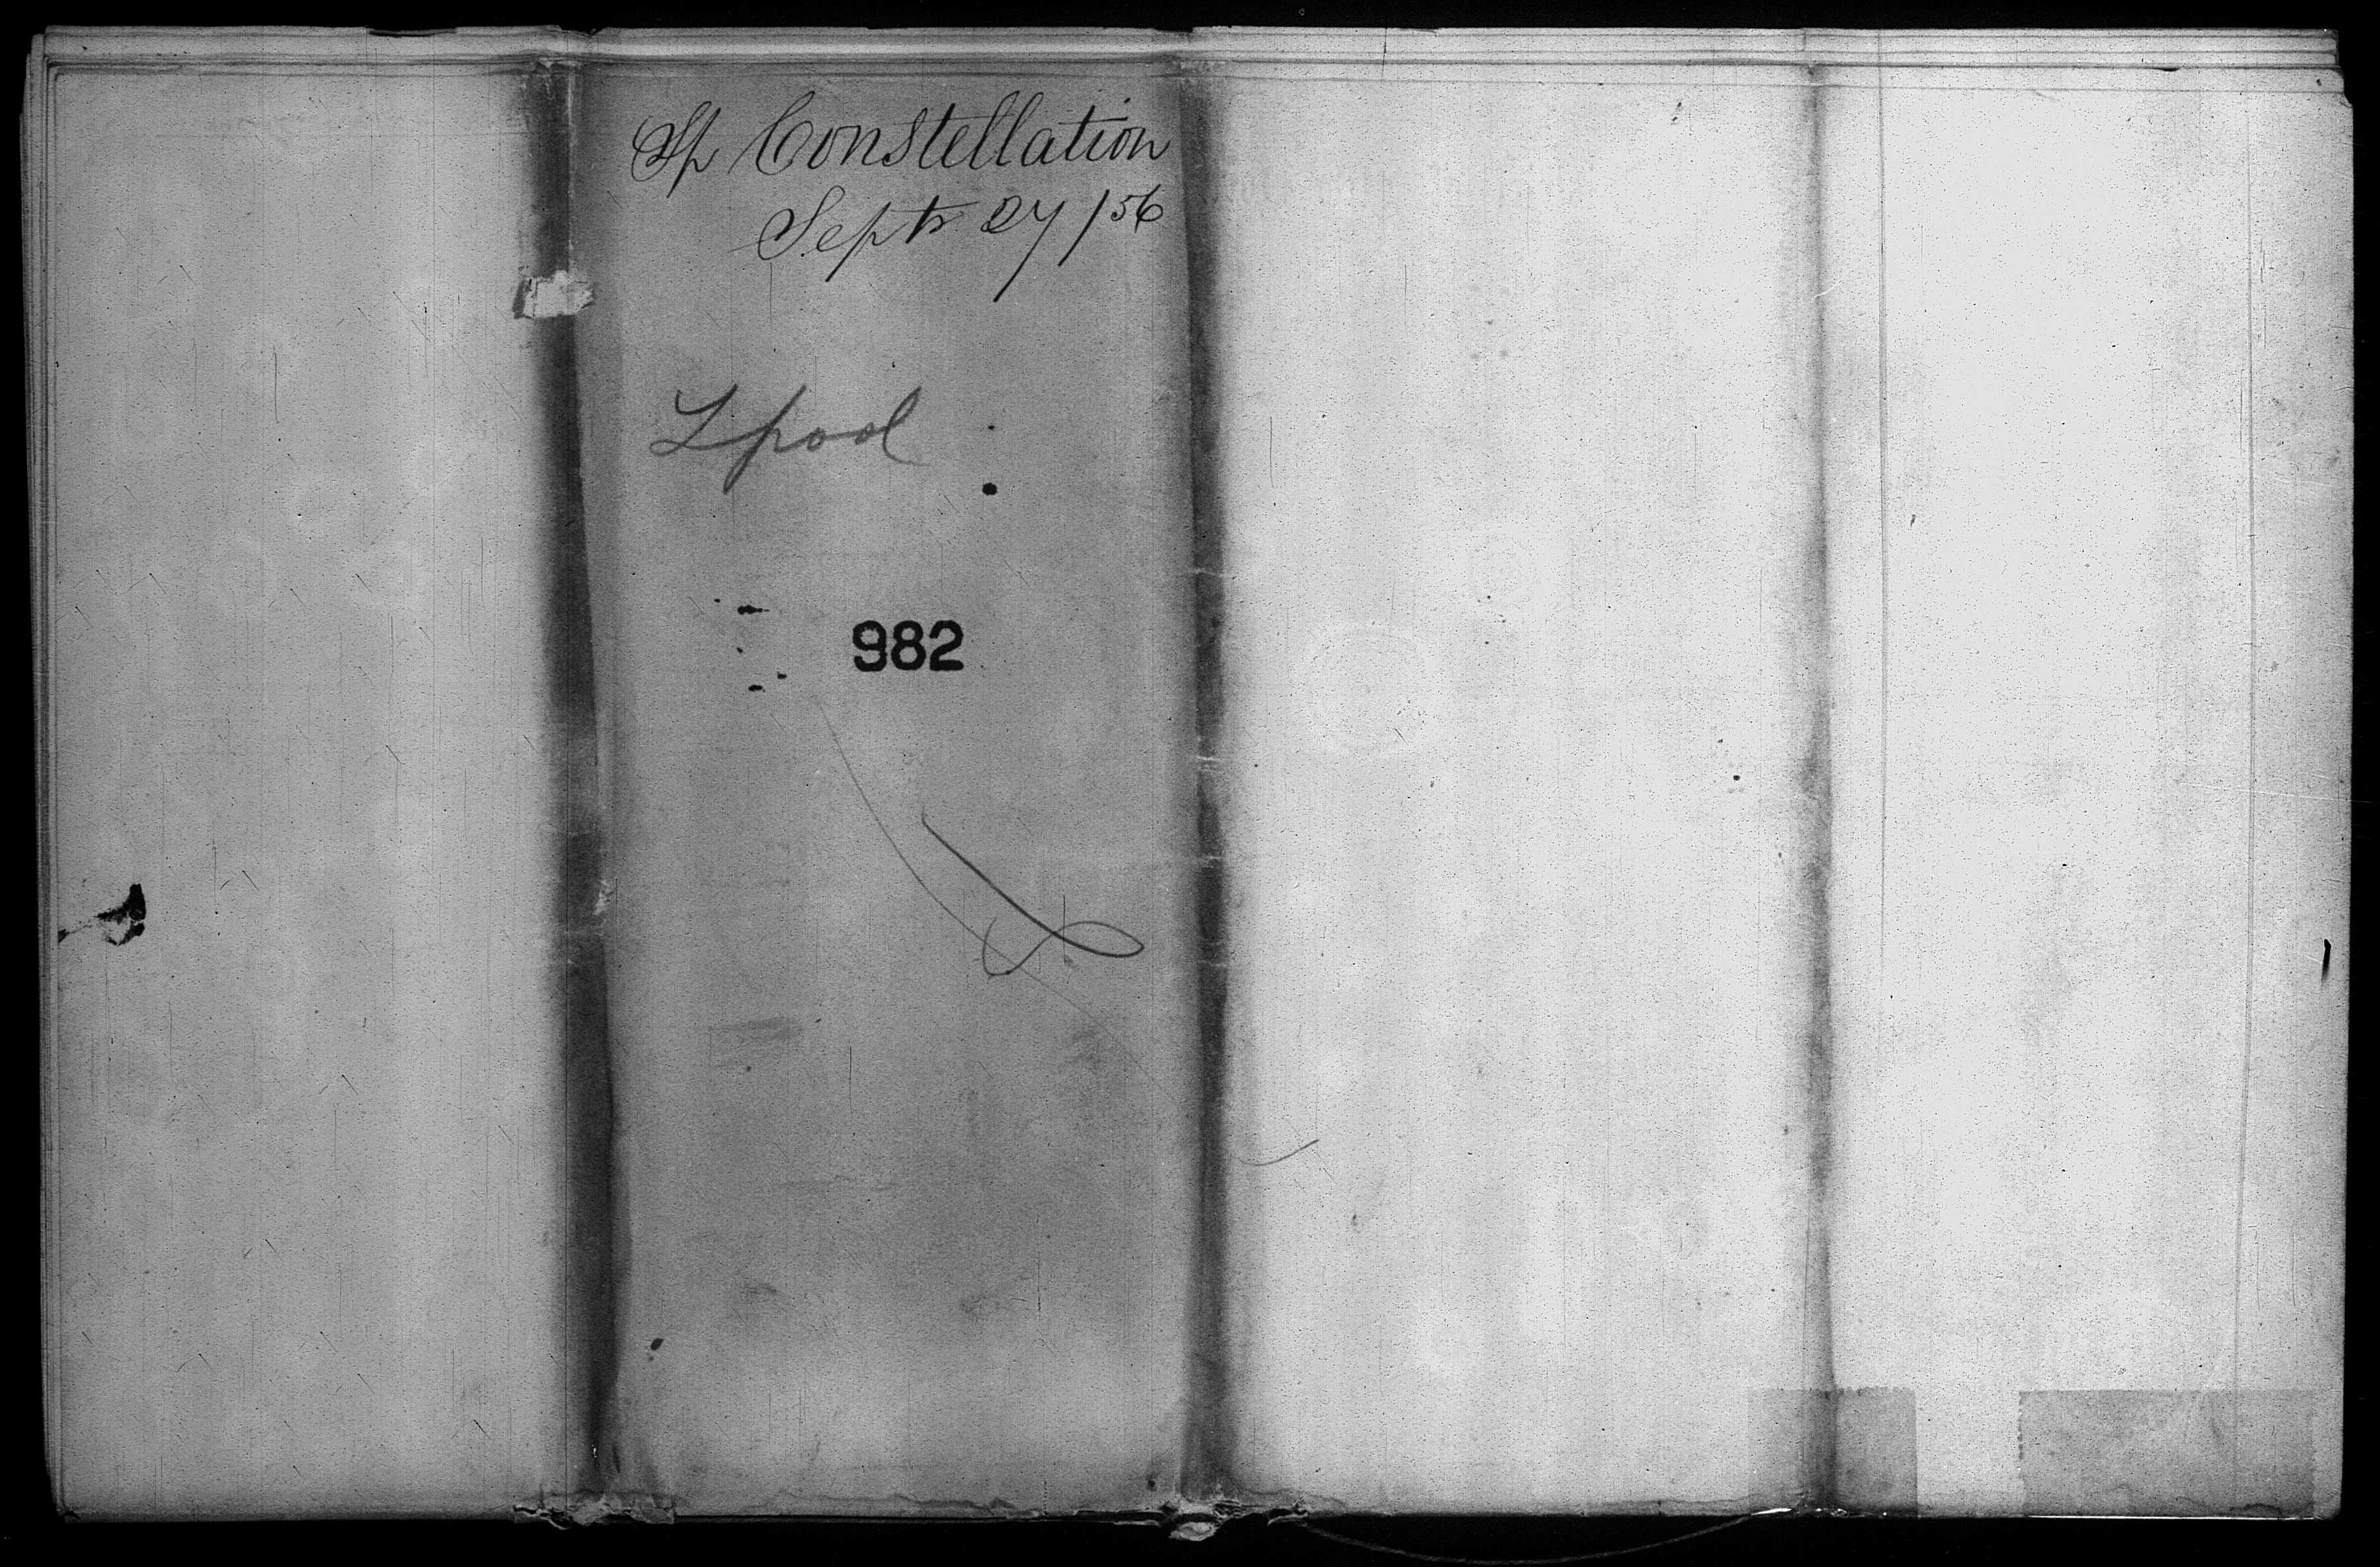 Sp Constellation
Septr 27/56
Lpool
982